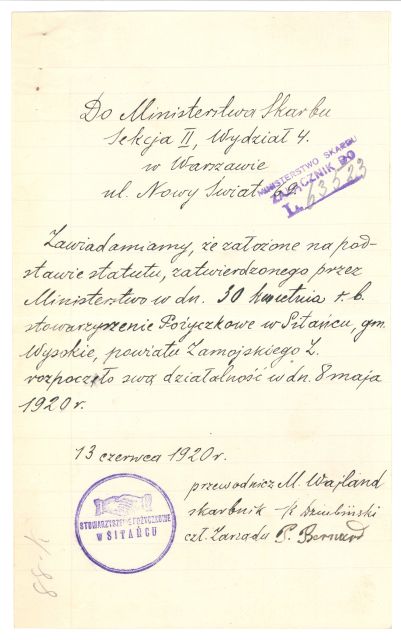 Do Ministerstwa Skarbu
Sekcja II, Wydział 4.
w Warszawie
ul. Nowy Świat
MINISTERSTWO SKARBU
ZAŁĄCZNIK DO
L. 63523
Zawiadamiamy, że założone na pod-
stawie statutu, zatwierdzonego przez
Ministerstwo w dn. 30 kwietnia r. b.
stowarzyszenie Pożyczkowe w Sitańcu, gm.
Wysokie, powiatu Zamojskiego Z.
rozpoczęło swą działalność w dn. 8 maja
1920 r.
13 czerwca 1920 r.
przewodnicz M. Wajland
skarbnik K Dziubiński
czł. Zarządu P. Bernard
STOWARZYSZENIE POŻYCZKOWE
W SITAŃCU